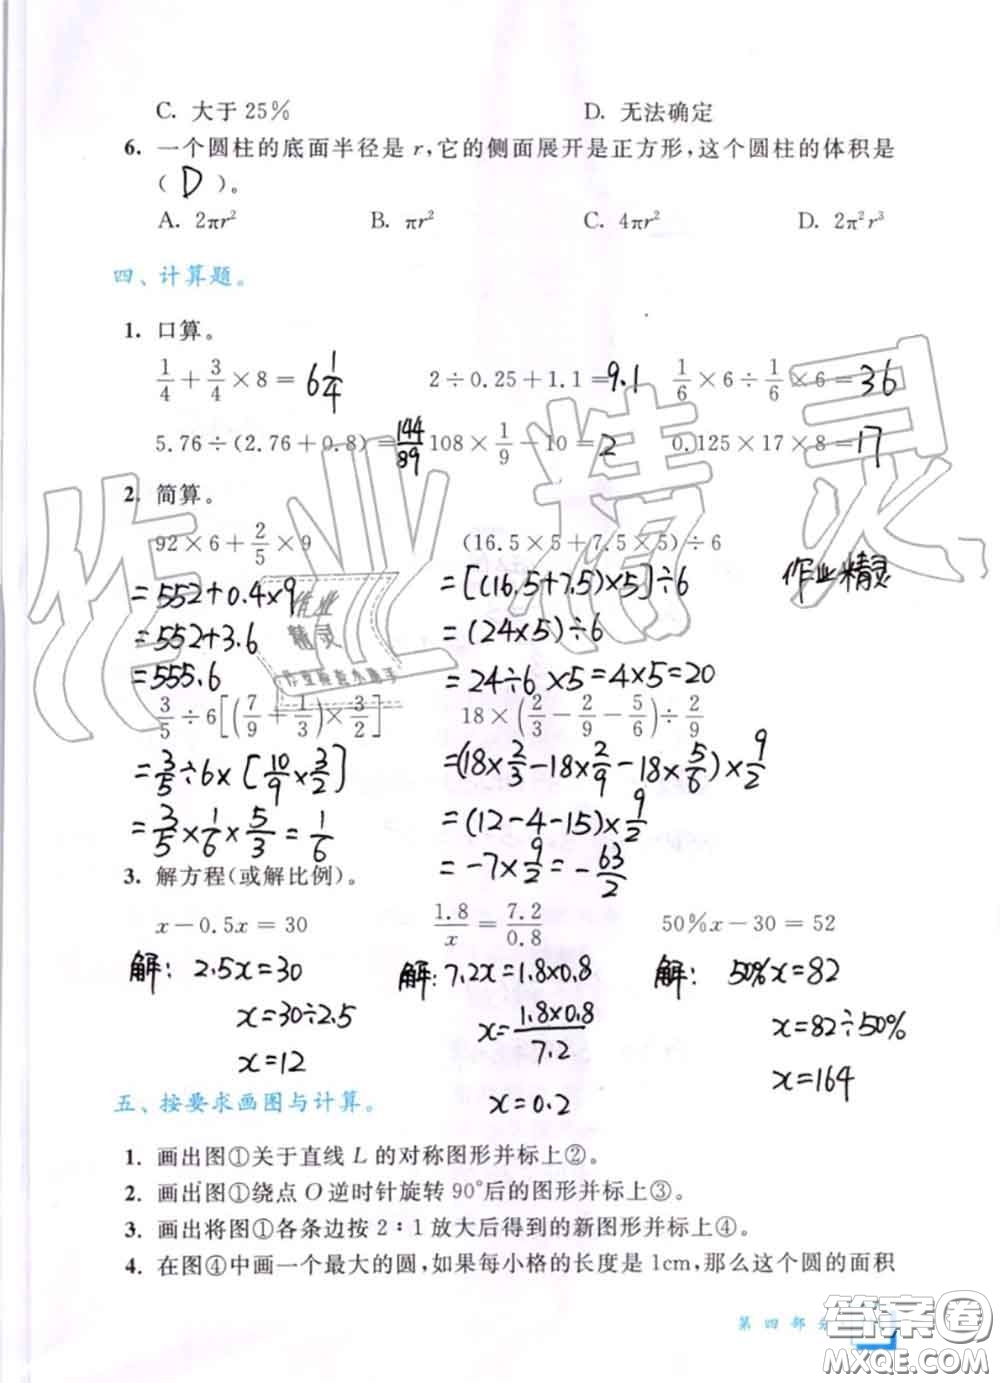 C. 大于25% D. 无法确定
6. 一个圆柱的底面半径是 r,它的侧面展开是正方形,这个圆柱的体积是
( D )。
A. 2πr² B. πr² C. 4πr² D. 2π²r³
四、计算题。
1. 口算。
1/4 + 3/4 × 8 = 6 1/4 2÷0.25+1.1=9.1 1/6 × 6 ÷ 1/6 × 6 = 36
5.76÷(2.76+0.8)=144/89 108 × 1/9 − 10 = 2 0.125×17×8=17
2. 简算。
92×6+2/5×9 (16.5×5+7.5×5)÷6
=552+0.4×9 =[(16.5+7.5)×5]÷6 作业精灵
=552+3.6 =(24×5)÷6
=555.6 =24÷6×5=4×5=20
3/5÷6[(7/9+1/3)×3/2] 18×(2/3−2/9−5/6)÷2/9
=3/5÷6×[10/9×3/2] =(18×2/3−18×2/9−18×5/6)×9/2
=3/5×1/6×5/3=1/6 =(12−4−15)×9/2
=−7×9/2=−63/2
3. 解方程(或解比例)。
x−0.5x=30 1.8/x=7.2/0.8 50%x−30=52
解: 2.5x=30 解: 7.2x=1.8×0.8 解: 50%x=82
x=30÷2.5 x=1.8×0.8/7.2 x=82÷50%
x=12 x=0.2 x=164
五、按要求画图与计算。
1. 画出图①关于直线 L 的对称图形并标上②。
2. 画出图①绕点 O 逆时针旋转 90°后的图形并标上③。
3. 画出将图①各条边按 2∶1 放大后得到的新图形并标上④。
4. 在图④中画一个最大的圆,如果每小格的长度是 1cm,那么这个圆的面积
第四部分
作业精灵
作业
精灵
答案圈
MXQE.COM